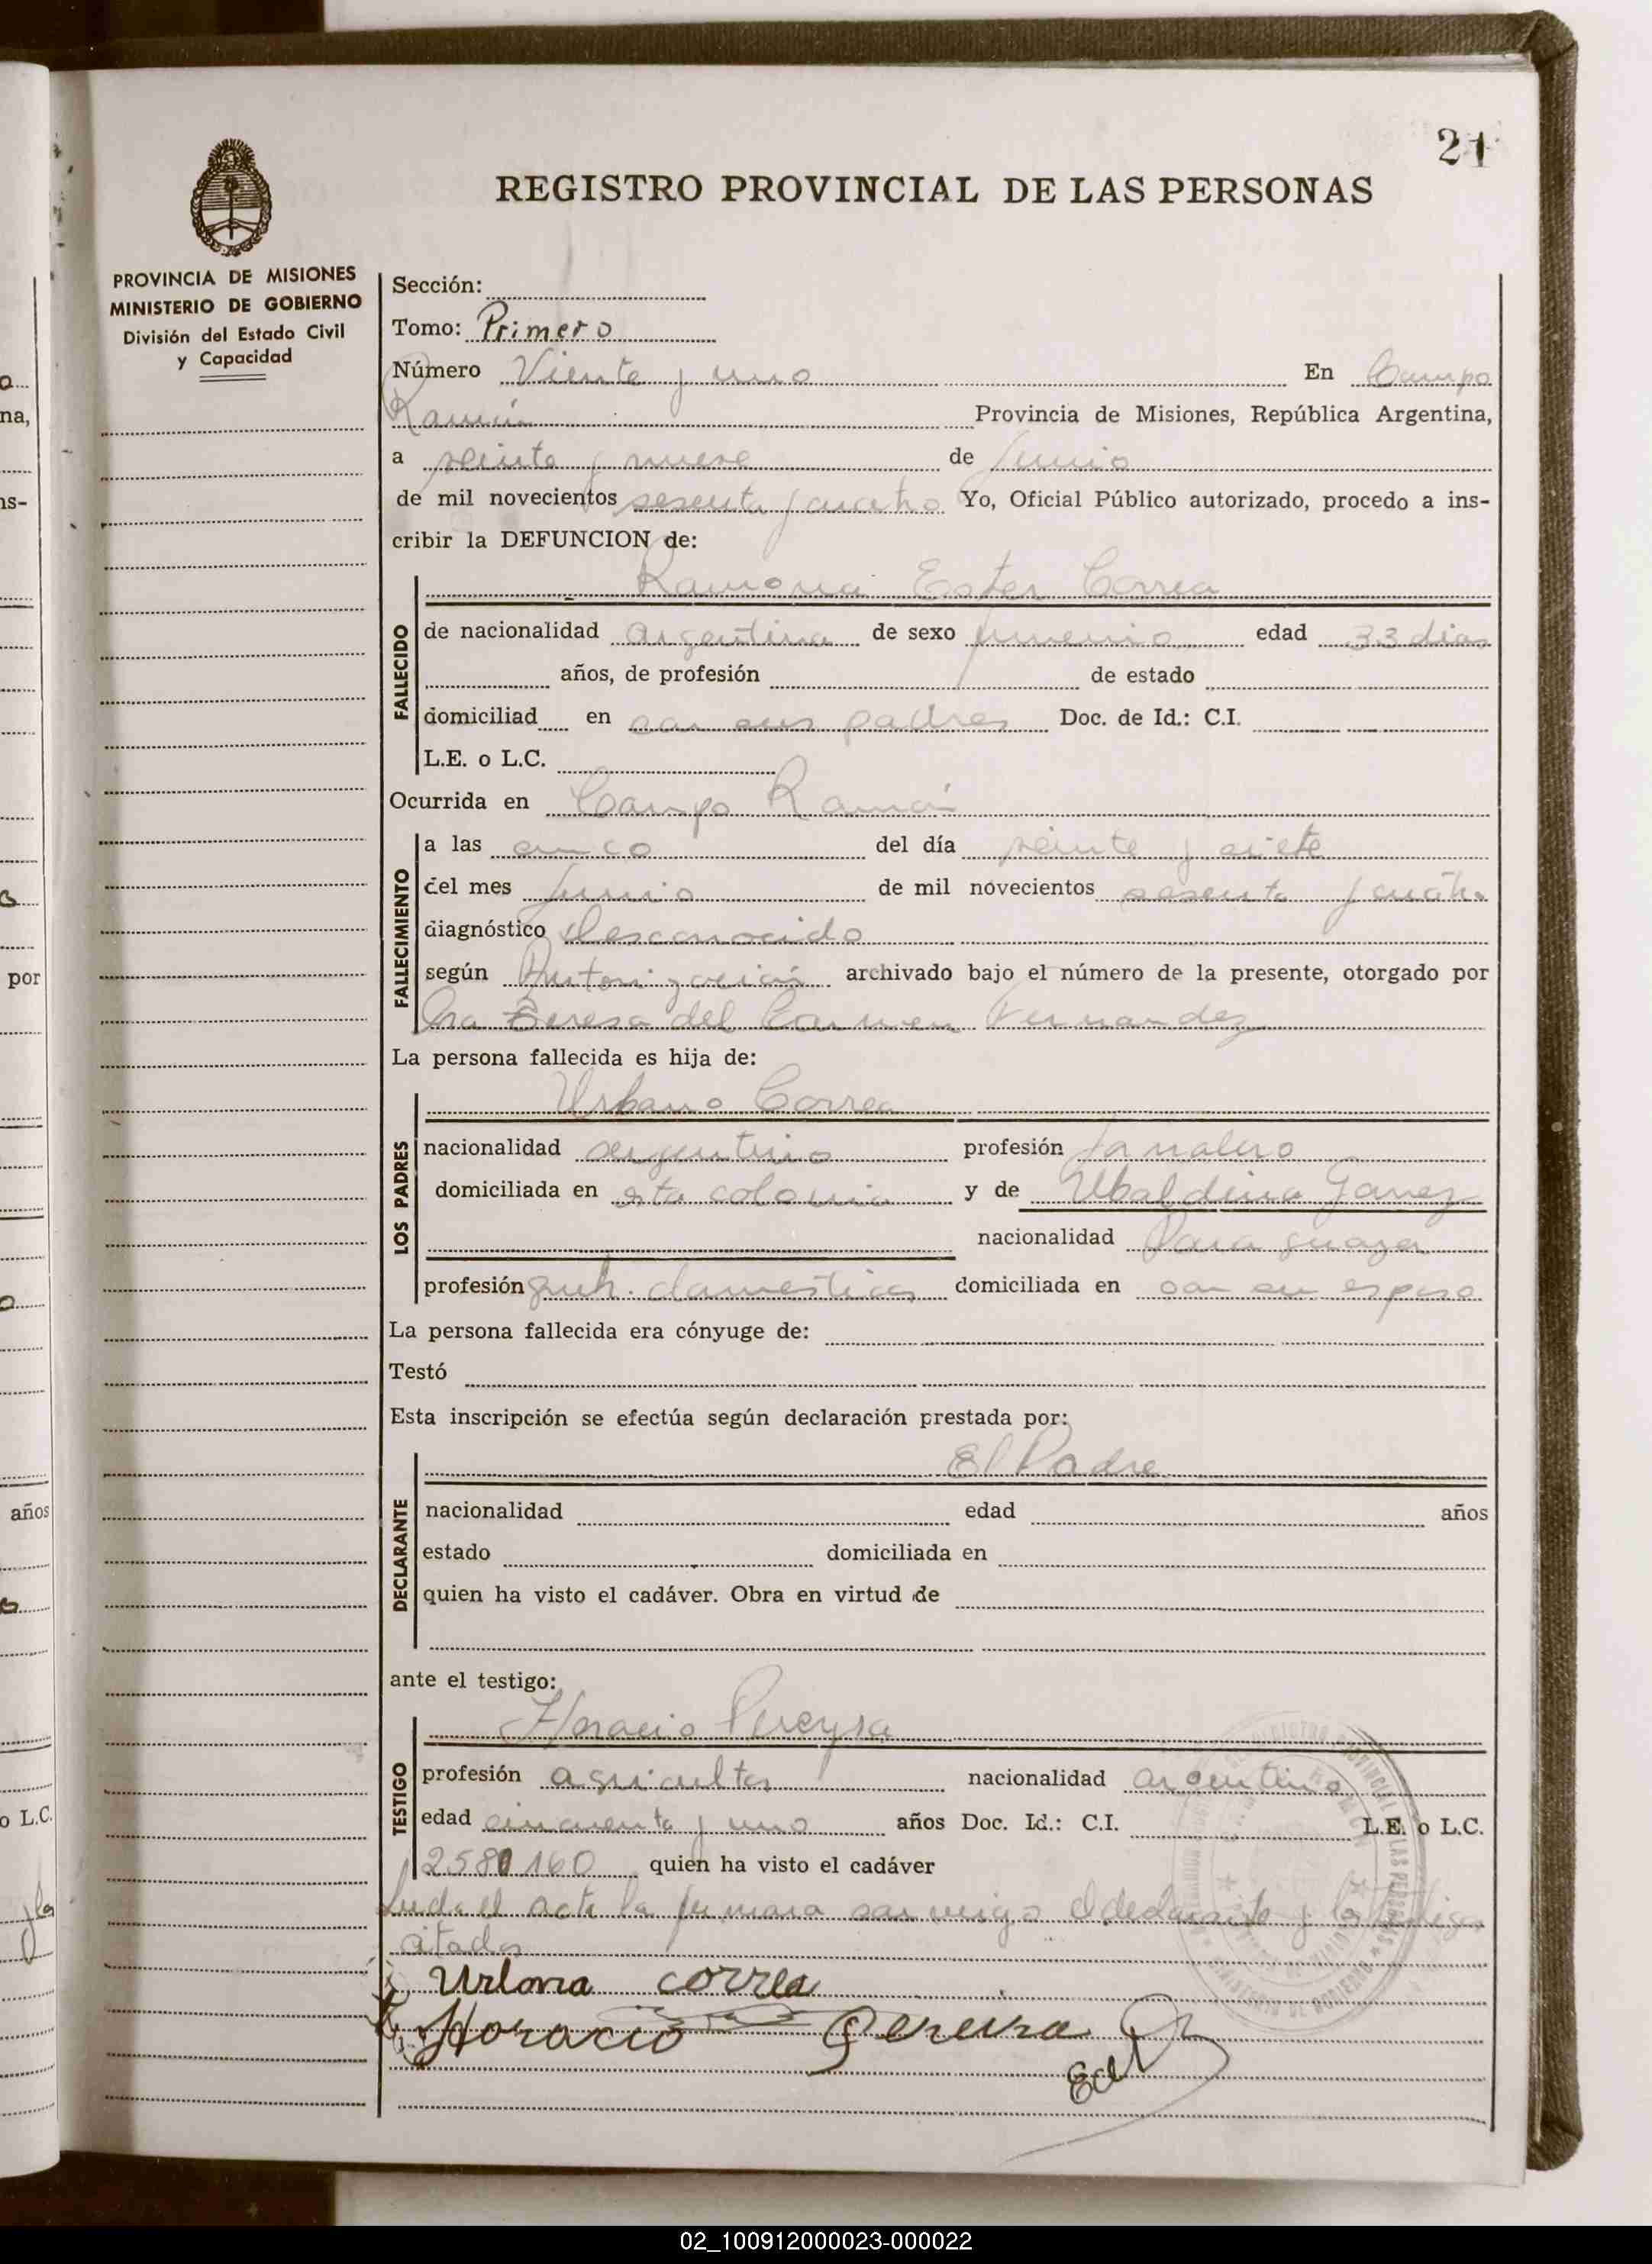 21
REGISTRO PROVINCIAL DE LAS PERSONAS
PROVINCIA DE MISIONES
MINISTERIO DE GOBIERNO
División del Estado Civil
y Capacidad
Sección:
Tomo: Primero
Número Viente y uno En Campo
Ramón Provincia de Misiones, República Argentina,
a veinte y nueve de Junio
de mil novecientos sesenta y cuatro Yo, Oficial Público autorizado, procedo a ins-
cribir la DEFUNCION de:
Ramona Ester Correa
FALLECIDO
de nacionalidad Argentina de sexo edad 33 dias
años, de profesión de estado
domiciliad en con sus padres Doc. de Id.: C.I.
L.E. o L.C.
Ocurrida en Campo Ramón
FALLECIMIENTO
a las cinco del día veinte y siete
del mes Junio de mil novecientos sesenta y cuatro
diagnóstico desconocido
según Autorización archivado bajo el número de la presente, otorgado por
Sra Teresa del Carmen Fernandez
La persona fallecida es hija de:
Urbano Correa
LOS PADRES
nacionalidad argentino profesión Jornalero
domiciliada en esta colonia y de Ubaldina
nacionalidad Paraguaya
profesión domesticos domiciliada en con su esposo
La persona fallecida era cónyuge de:
Testó
Esta inscripción se efectúa según declaración prestada por:
El Padre
DECLARANTE
nacionalidad edad años
estado domiciliada en
quien ha visto el cadáver. Obra en virtud de
ante el testigo:
Horacio Pereyra
TESTIGO
profesión agricultor nacionalidad argentino
edad cincuenta y uno años Doc. Id.: C.I. L.E. o L.C.
160 quien ha visto el cadáver
el acta la conmigo el declarante y
citados
correa
Horacio Pereira
na,
ns-
por
años
o L.C.
02_100912000023-000022